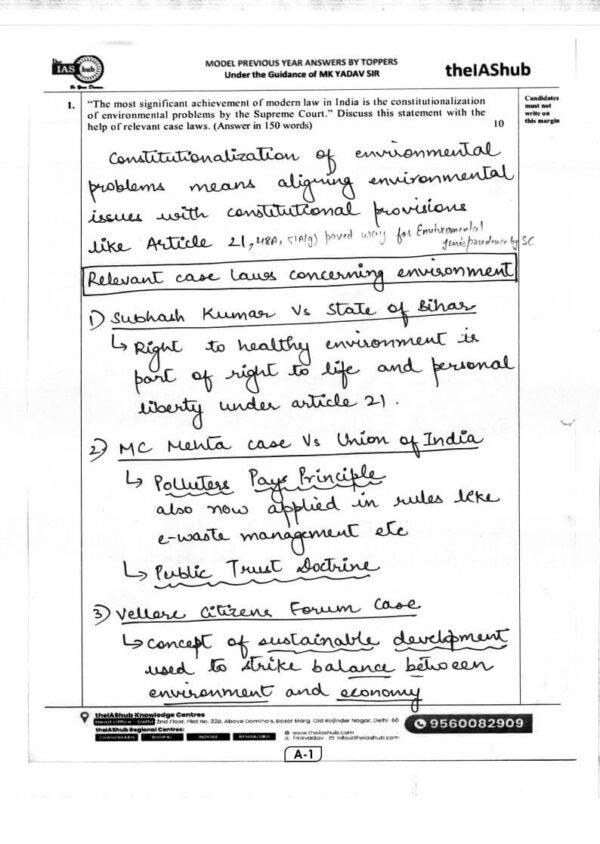 The
IAS hub
MODEL PREVIOUS YEAR ANSWERS BY TOPPERS
Under the Guidance of MK YADAV SIR
theIAShub
Candidates
must not
write on
this margin
1. "The most significant achievement of modern law in India is the constitutionalization
of environmental problems by the Supreme Court." Discuss this statement with the
help of relevant case laws. (Answer in 150 words) 10
Constitutionalization of environmental
problems means aligning environmental
issues with constitutional provisions
like Article 21, 48A, 51A(g) paved way for Environmental
Jurisprudence by SC
Relevant case laws concerning environment
1) Subhash Kumar Vs State of Bihar
↳ Right to healthy environment is
part of right to life and personal
liberty under article 21.
2) MC Mehta case Vs Union of India
↳ Polluters Pays Principle
also now applied in rules like
e-waste management etc
↳ Public Trust Doctrine
3) Vellore Citizens Forum Case
↳ concept of sustainable development
used to strike balance between
environment and economy
theIAShub Knowledge Centres
Head Office - Delhi 2nd Floor, Plot no. 22B, Above Domino's, Bazar Marg, Old Rajinder Nagar, Delhi-60
theIAShub Regional Centres:
CHANDIGARH BHOPAL INDORE BENGALURU
www.theiashub.com
info@theiashub.com
9560082909
A-1